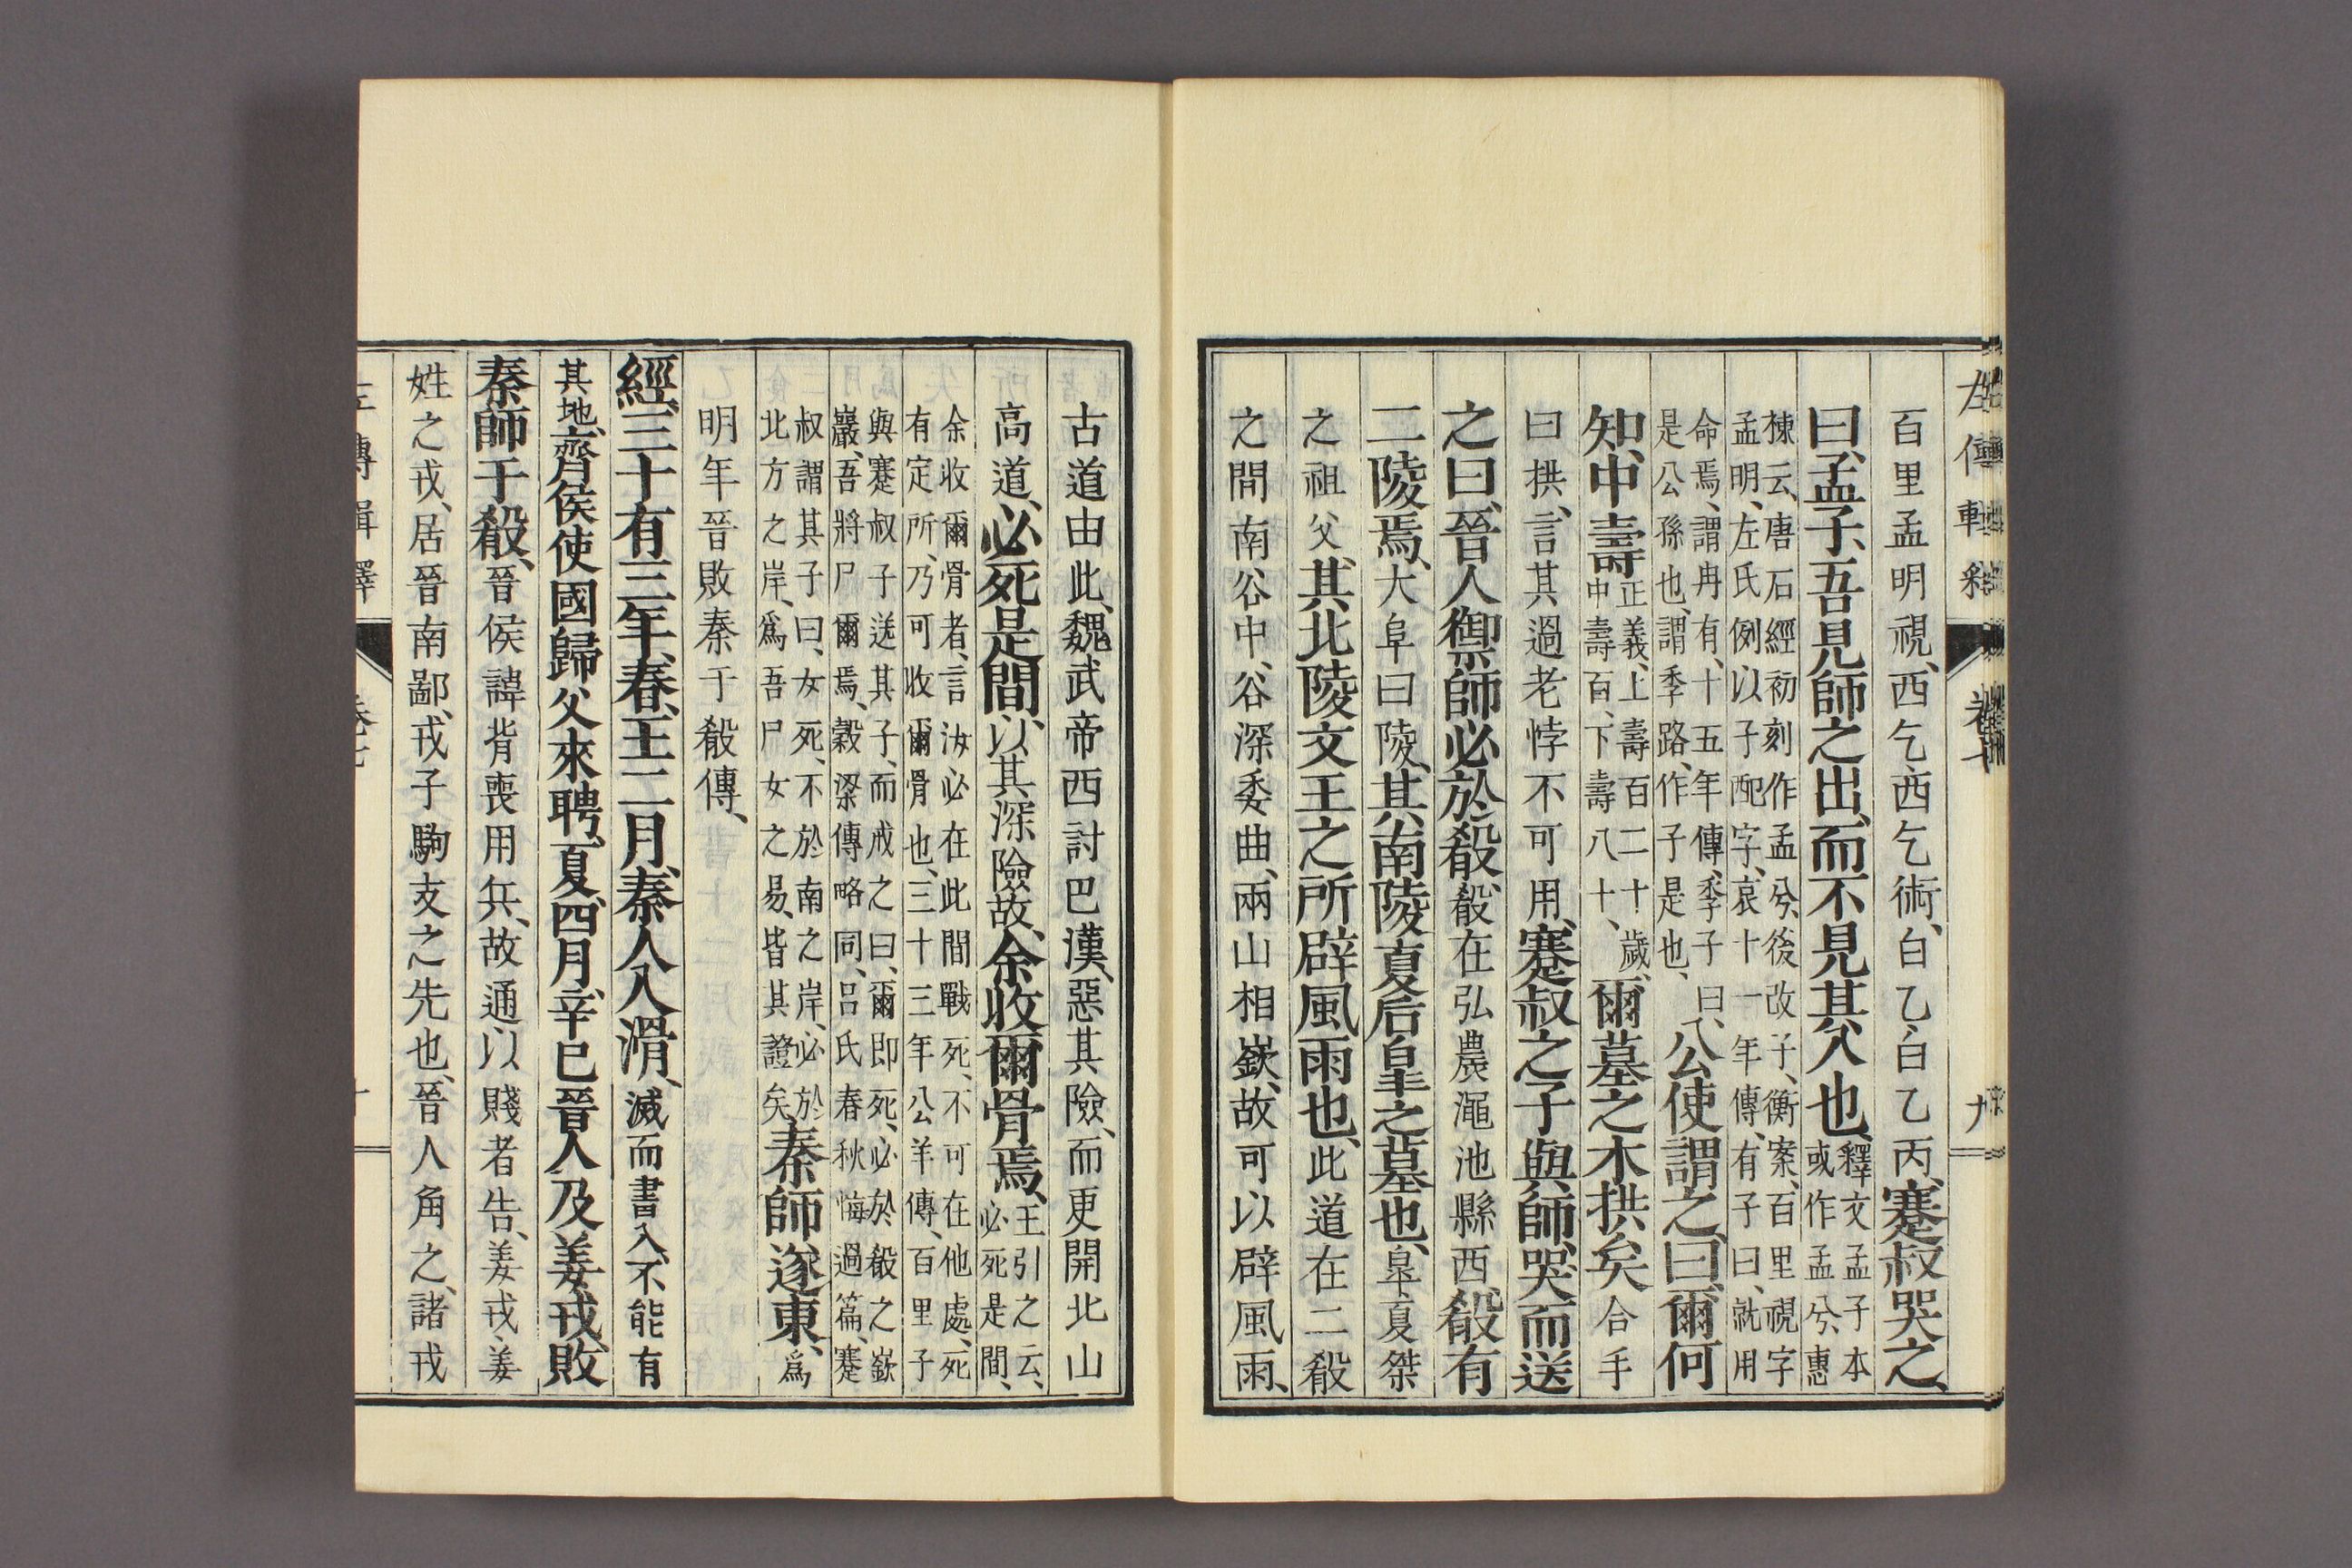 百里孟明視、西乞、西乞術、白乙、白乙丙、蹇叔哭之、
曰、孟子、吾見師之出、而不見其入也、釋文孟子本或作孟兮、惠
棟云、唐石經初刻作孟兮、後改子、衡案、百里視字孟明、左氏例以子配字、哀十一年傳、有子曰、就用
命焉、謂冉有、十五年傳、季子曰、是公孫也、謂季路、作子是也、公使謂之曰、爾何
知、中壽正義、上壽百二十歲、中壽百、下壽八十、爾墓之木拱矣合手
曰拱、言其過老悖不可用、蹇叔之子與師、哭而送
之曰、晉人禦師必於殽、殽在弘農澠池縣西、殽有
二陵焉、大阜曰陵、其南陵夏后皐之墓也、皐、夏桀
之祖父、其北陵文王之所辟風雨也、此道在二殽
之間南谷中、谷深委曲、兩山相嶔、故可以辟風雨、
古道由此、魏武帝西討巴漢、惡其險、而更開北山
高道、必死是間、以其深險故、余收爾骨焉、王引之云、必死是間、
余收爾骨者、言汝必在此間戰死、不可在他處、死有定所、乃可收爾骨也、三十三年公羊傳、百里子
與蹇叔子送其子、而戒之曰、爾即死、必於殽之嶔巖、吾將尸爾焉、穀梁傳略同、呂氏春秋悔過篇、蹇
叔謂其子曰、女死、不於南之岸、必於北方之岸、爲吾尸女之易、皆其證矣、秦師遂東、爲
明年晉敗秦于殽傳、
經、三十有三年、春、王二月、秦人入滑、滅而書入、不能有
其地、齊侯使國歸父來聘、夏、四月、辛巳、晉人及姜戎、敗
秦師于殽、晉侯諱背喪用兵、故通以賤者告、姜戎、姜
姓之戎、居晉南鄙、戎子駒支之先也、晉人角之、諸戎